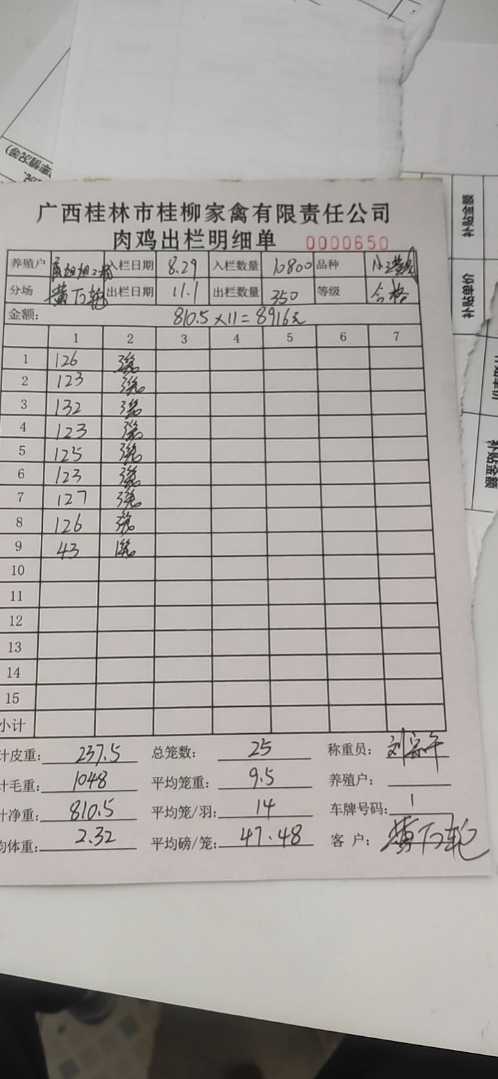 广西桂林市桂柳家禽有限责任公司
肉鸡出栏明细单 0000650
养殖户 入栏日期 8.29 入栏数量 10800 品种
分场 黄万轮 出栏日期 11.1 出栏数量 350 等级 合格
金额: 810.5×11=8916元
1 2 3 4 5 6 7
1 126 3笼
2 123 3笼
3 132 3笼
4 123 3笼
5 125 3笼
6 123 3笼
7 127 3笼
8 126 3笼
9 43 1笼
10
11
12
13
14
15
小计
计皮重: 237.5 总笼数: 25 称重员:
计毛重: 1048 平均笼重: 9.5 养殖户:
计净重: 810.5 平均笼/羽: 14 车牌号码: 1
均体重: 2.32 平均磅/笼: 47.48 客户: 黄万轮
补贴金额